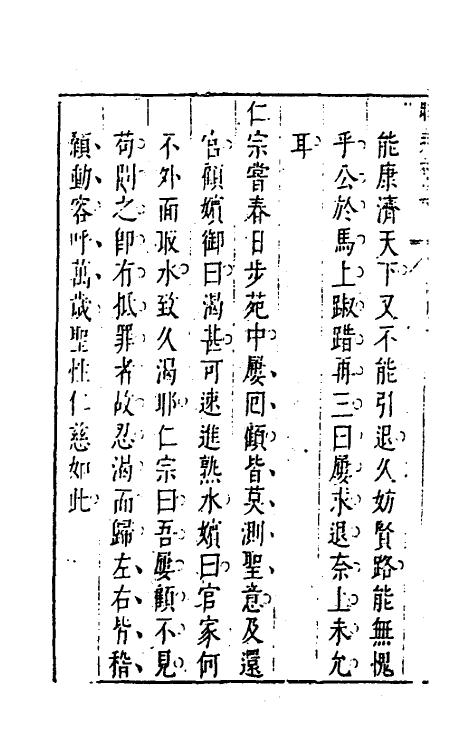 能康濟天下又不能引退久妨賢路能無愧
乎公於馬上踧踖再三曰屢求退奈上未允
耳
仁宗嘗春日步苑中屢回顧皆莫測聖意及還
宮顧嬪御曰渴甚可速進熟水嬪曰官家何
不外面取水致久渴耶仁宗曰吾屢顧不見
苟問之即有抵罪者故忍渴而歸左右皆稽
顙動容呼萬歲聖性仁慈如此